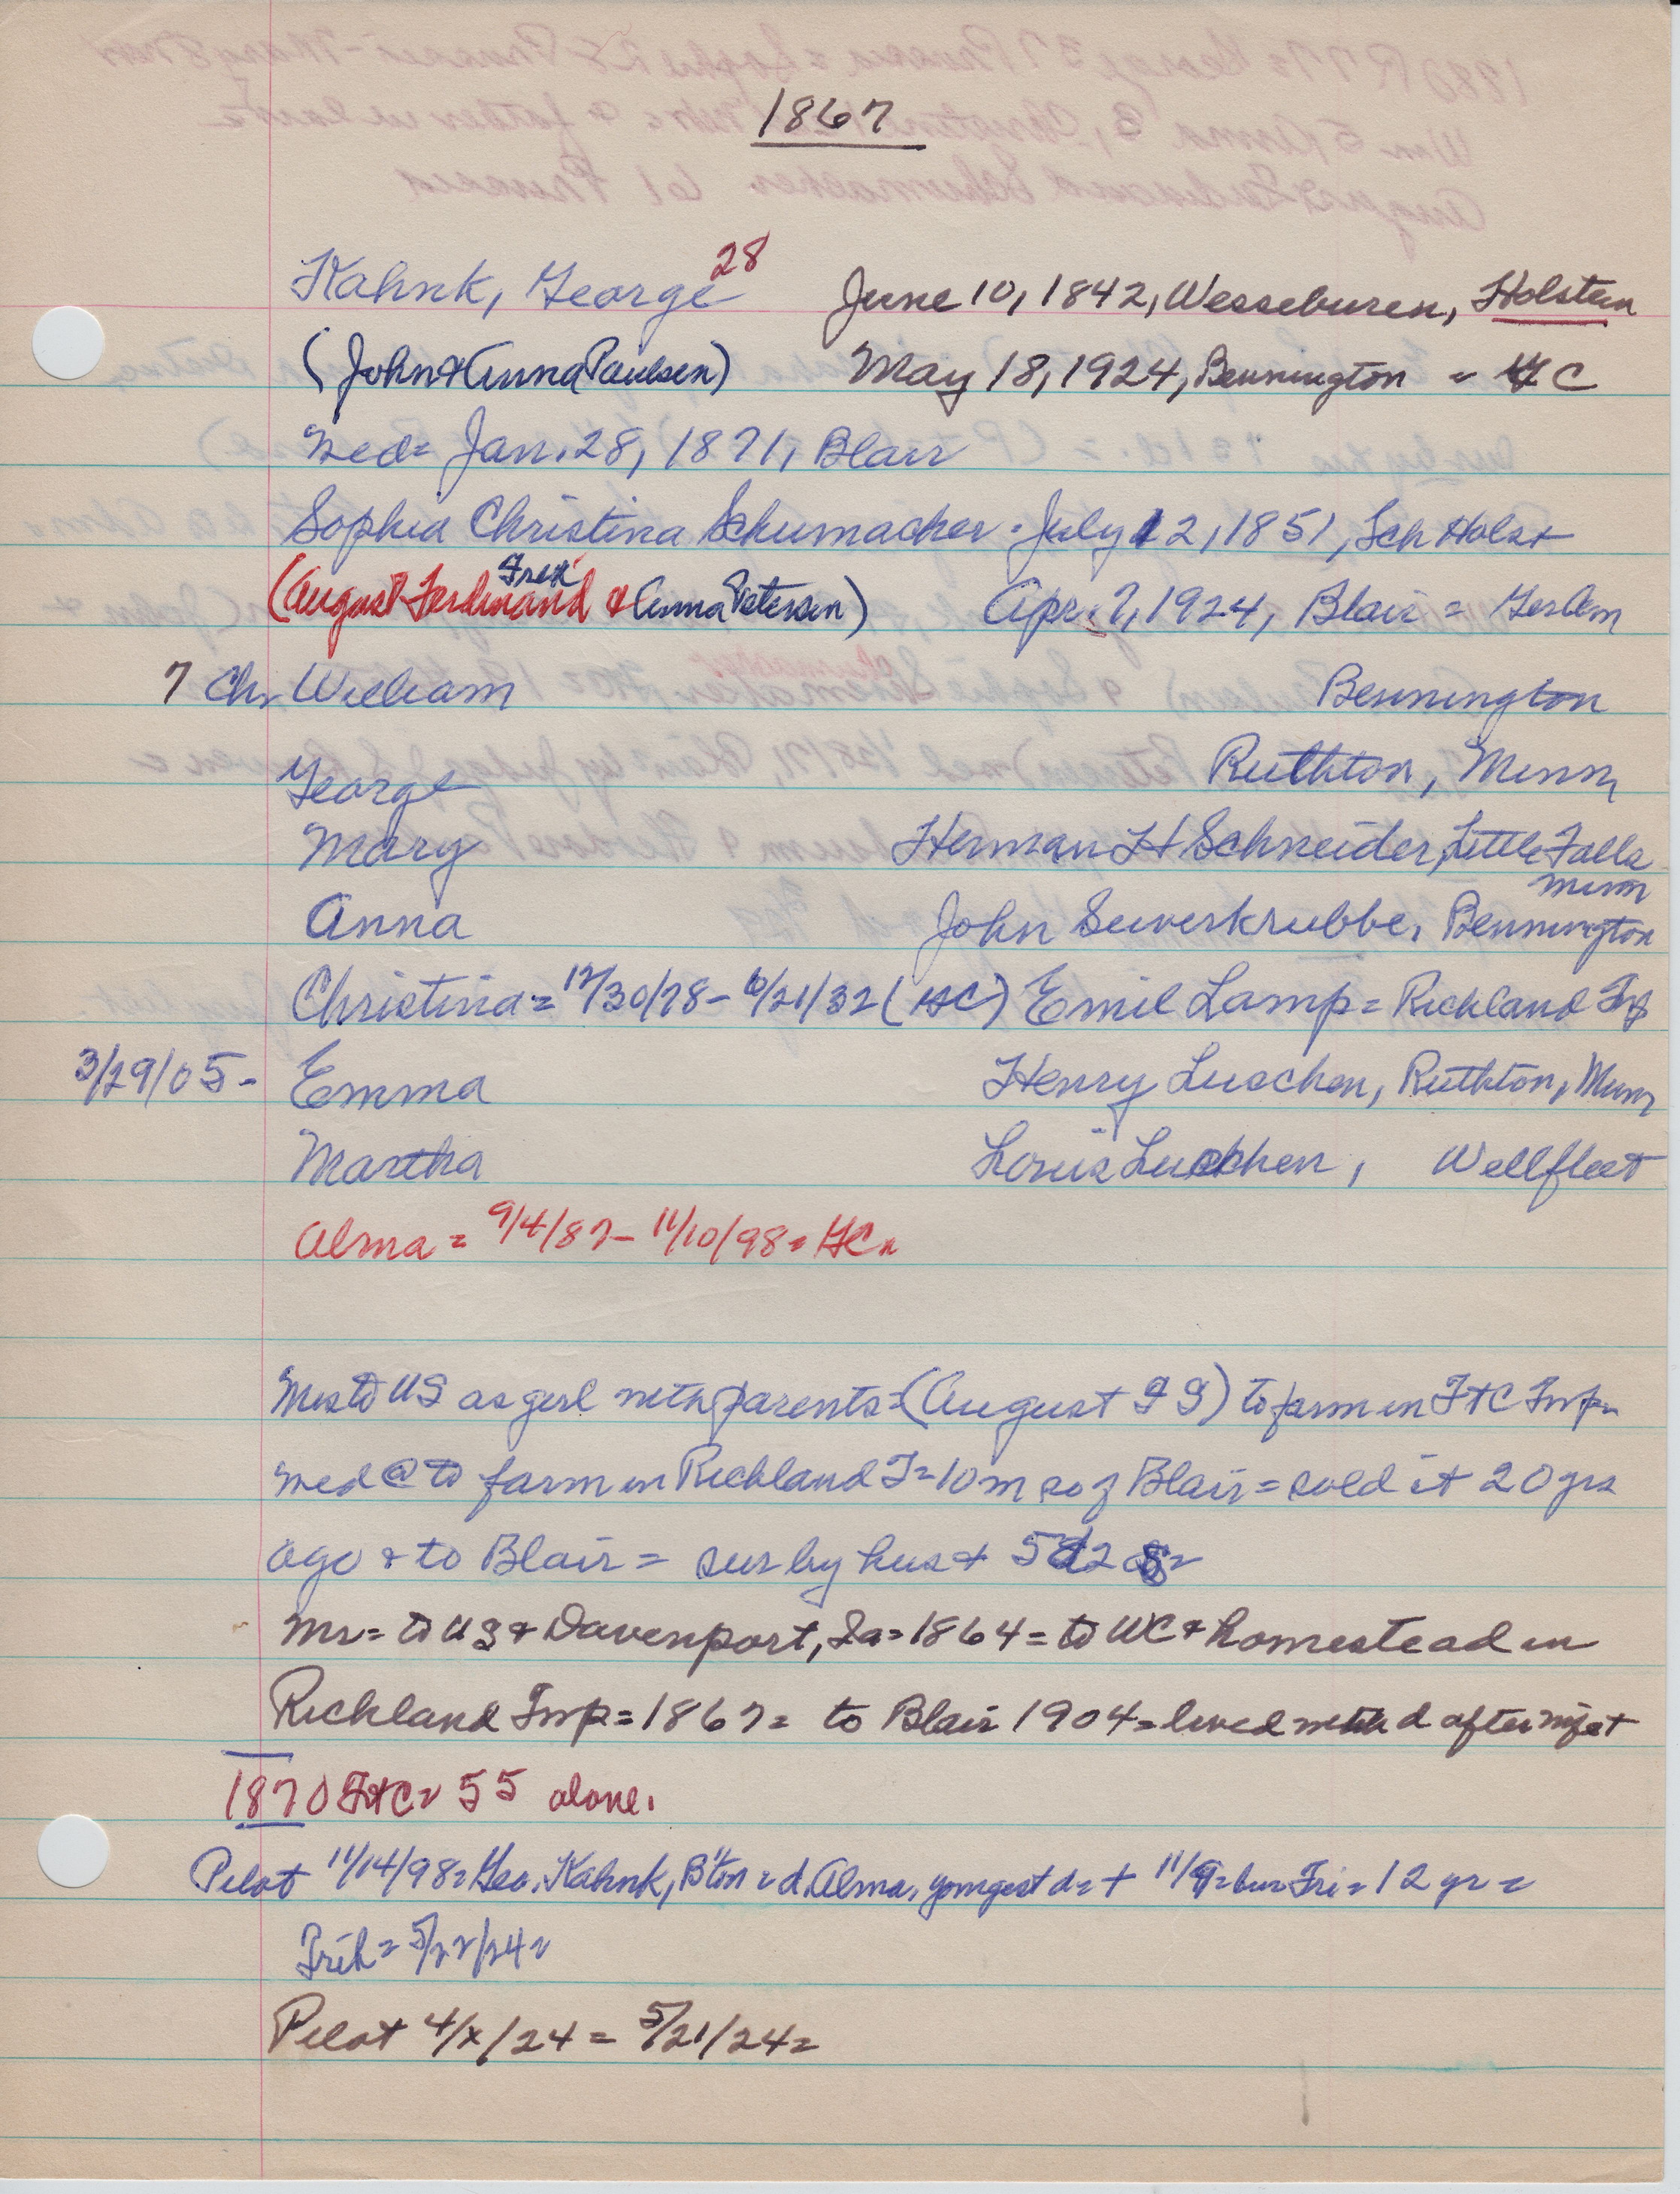 1867
Kahnk, George 28 June 10, 1842, Wesseburen, Holstein
(John & Anna Paulsen) May 18, 1924, Bennington = GC
Med= Jan. 28, 1871, Blair
Sophia Christina Schumacher. July 12, 1851, Sch Holst
(August Ferdinand Fred & Anna Petersen) Apr. 7, 1924, Blair = GerCem
7 Chr William Bennington
George Ruthton, Minn
Mary Herman H Schneider, Little Falls
Minn
Anna John Suverkrubbe, Bennington
Christina = 12/30/78 - 6/21/32 (GC) Emil Lamp = Richland Twp
3/29/05 - Emma Henry Luschen, Ruthton, Minn
Martha Louis Luschen, Wellfleet
Alma = 9/4/87 - 11/10/98 = GC
Mrs to US as girl with parents = (August) to farm in FtC Twp
med @ to farm in Richland T = 10 m so of Blair = sold it 20 yrs
ago & to Blair = sur by hus & 5d 2 s =
Mr = to US & Davenport, Ia = 1864 = to WC & homestead in
Richland Twp = 1867 = to Blair 1904 = lived with d after
1870 FtC = 55 alone.
Pilot 11/14/98 = Geo. Kahnk, B'ton = d. Alma, youngest d = + 11/9 = bur Fri = 12 yr =
Trib = 5/22/24 =
Pilot 4/x/24 = 5/21/24 =